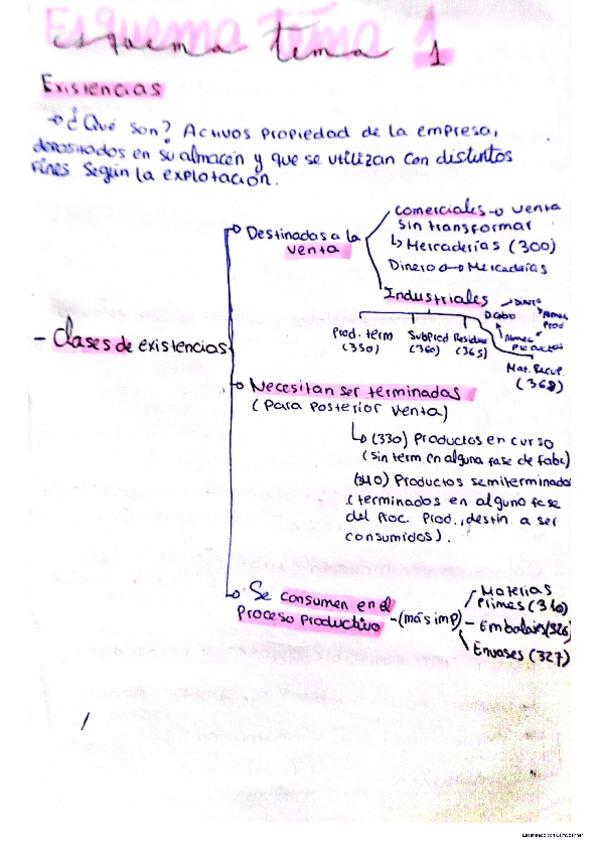 Esquema tema 1
Existencias
→ ¿Qué son? Activos propiedad de la empresa,
depositados en su almacén y que se utilizan con distintos
fines según la explotación.
- Clases de existencias
→ Destinados a la
venta
Comerciales → venta
sin transformar
↳ Mercaderías (300)
Dinero → Mercaderías
Industriales
Prod. term
(350)
Subprod
(360)
Residuos
(365)
Mat. Recup.
(368)
→ Necesitan ser terminadas
(Para posterior venta)
↳ (330) Productos en curso
(sin term. en alguna fase de fabr)
(340) Productos semiterminados
(terminados en alguna fase
del Proc. Prod., destin. a ser
consumidos).
→ Se consumen en el
Proceso productivo
- (más imp)
Materias
Primas (310)
- Embalajes (326)
Envases (327)